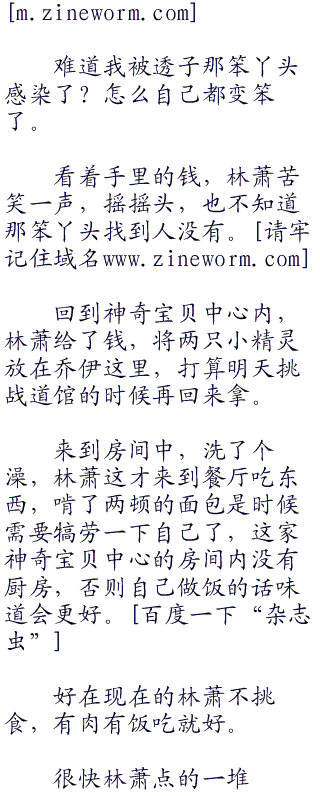 [m.zineworm.com]
难道我被透子那笨丫头
感染了？怎么自己都变笨
了。
看着手里的钱，林萧苦
笑一声，摇摇头，也不知道
那笨丫头找到人没有。[请牢
记住域名www.zineworm.com]
回到神奇宝贝中心内，
林萧给了钱，将两只小精灵
放在乔伊这里，打算明天挑
战道馆的时候再回来拿。
来到房间中，洗了个
澡，林萧这才来到餐厅吃东
西，啃了两顿的面包是时候
需要犒劳一下自己了，这家
神奇宝贝中心的房间内没有
厨房，否则自己做饭的话味
道会更好。[百度一下“杂志
虫”]
好在现在的林萧不挑
食，有肉有饭吃就好。
很快林萧点的一堆